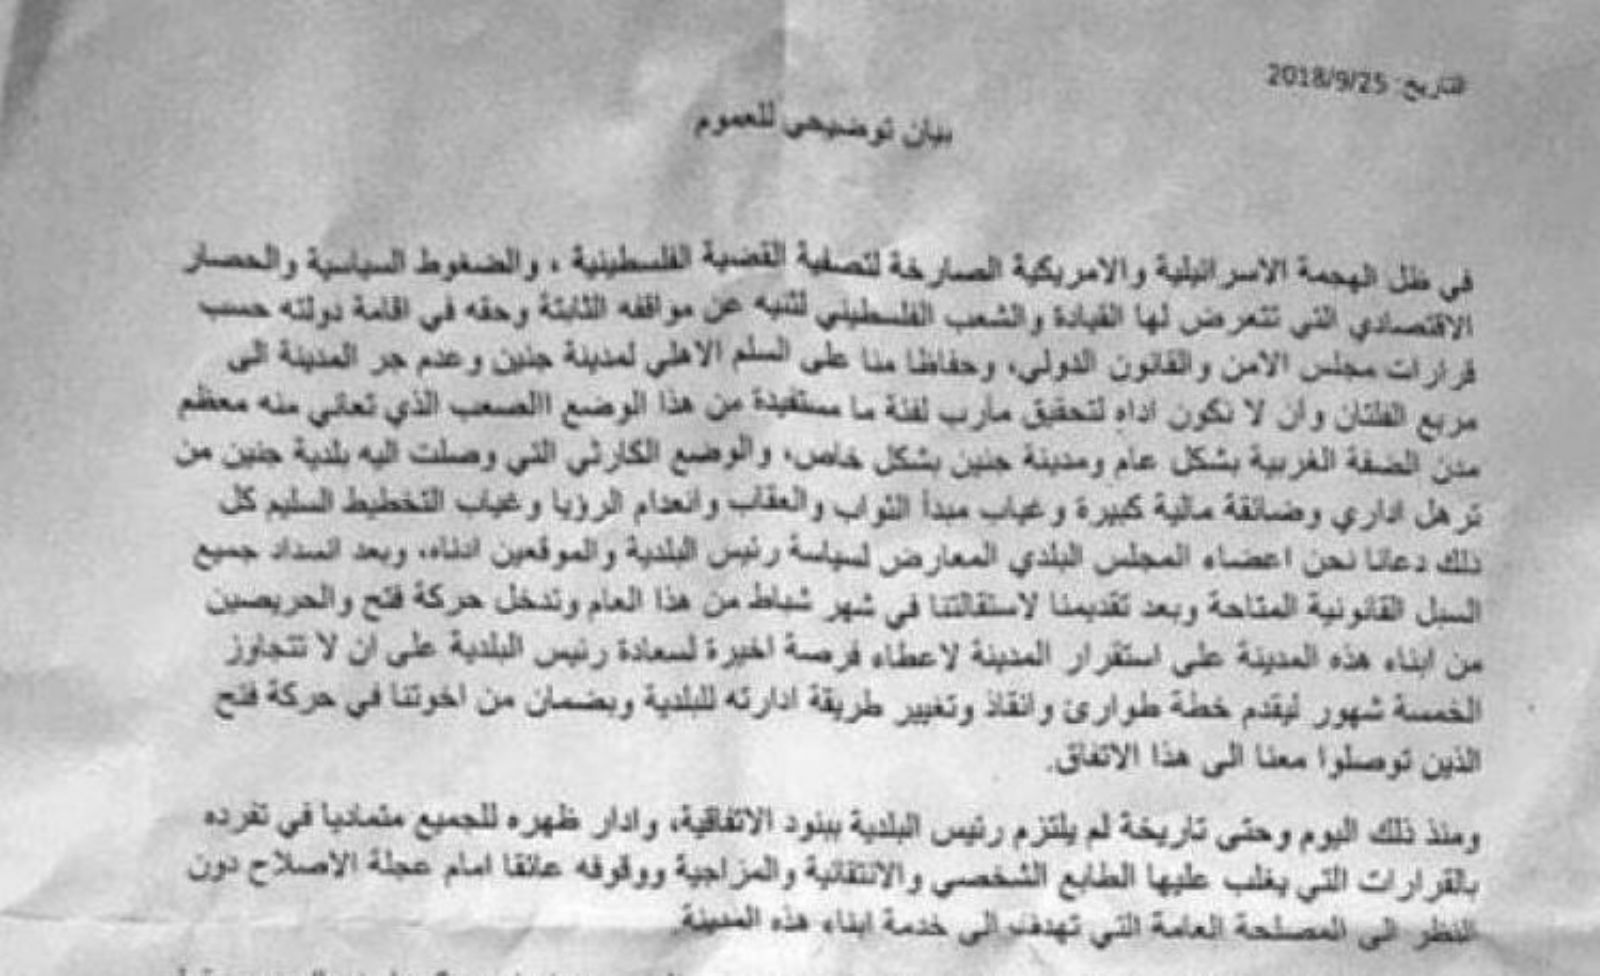 التاريخ: 2018/9/25
بيان توضيحي للعموم
في ظل الهجمة الاسرائيلية والامريكية الصارخة لتصفية القضية الفلسطينية ، والضغوط السياسية والحصار
الاقتصادي التي تتعرض لها القيادة والشعب الفلسطيني لثنيه عن مواقفه الثابتة وحقه في اقامة دولته حسب
قرارات مجلس الامن والقانون الدولي، وحفاظا منا على السلم الاهلي لمدينة جنين وعدم جر المدينة الى
مربع الفلتان وان لا نكون اداه لتحقيق مآرب لفئة ما مستفيدة من هذا الوضع االصعب الذي تعاني منه معظم
مدن الضفة الغربية بشكل عام ومدينة جنين بشكل خاص، والوضع الكارثي التي وصلت اليه بلدية جنين من
ترهل اداري وضائقة مالية كبيرة وغياب مبدأ الثواب والعقاب وانعدام الرؤيا وغياب التخطيط السليم كل
ذلك دعانا نحن اعضاء المجلس البلدي المعارض لسياسة رئيس البلدية والموقعين ادناه، وبعد انسداد جميع
السبل القانونية المتاحة وبعد تقديمنا لاستقالتنا في شهر شباط من هذا العام وتدخل حركة فتح والحريصين
من ابناء هذه المدينة على استقرار المدينة لاعطاء فرصة اخيرة لسعادة رئيس البلدية على ان لا تتجاوز
الخمسة شهور ليقدم خطة طوارئ وانقاذ وتغيير طريقة ادارته للبلدية وبضمان من اخوتنا في حركة فتح
الذين توصلوا معنا الى هذا الاتفاق.
ومنذ ذلك اليوم وحتى تاريخة لم يلتزم رئيس البلدية ببنود الاتفاقية، وادار ظهره للجميع متماديا في تفرده
بالقرارات التي يغلب عليها الطابع الشخصي والانتقائية والمزاجية ووقوفه عائقا امام عجلة الاصلاح دون
النظر الى المصلحة العامة التي تهدف الى خدمة ابناء هذه المدينة.